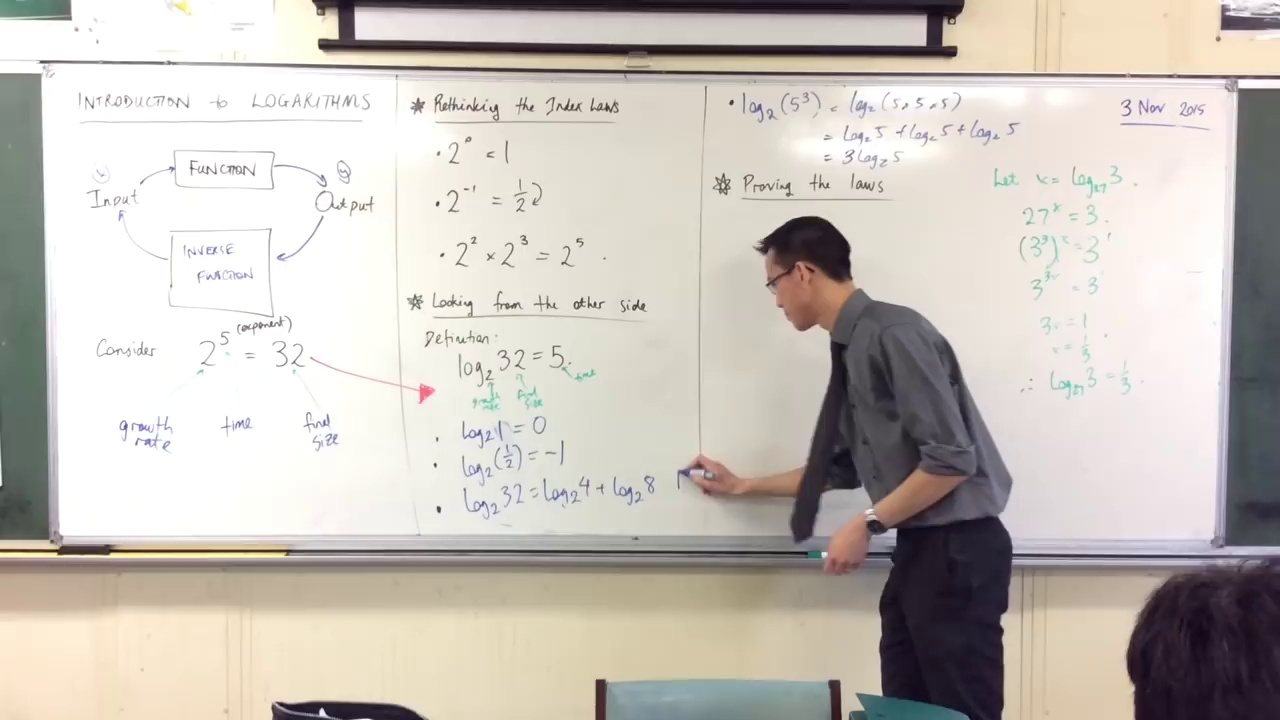 INTRODUCTION to LOGARITHMS
FUNCTION
Input
Output
INVERSE
FUNCTION
Consider 2^5 = 32
(exponent)
growth
rate
time
final
size
* Rethinking the Index Laws
• 2^0 = 1
• 2^-1 = 1/2
• 2^2 × 2^3 = 2^5 .
* Looking from the other side
Definition:
log₂ 32 = 5.
growth
rate
final
size
time
• log₂ 1 = 0
• log₂ (1/2) = -1
• log₂ 32 = log₂ 4 + log₂ 8
• log₂ (5^3) = log₂ (5 × 5 × 5)
= log₂ 5 + log₂ 5 + log₂ 5
= 3 log₂ 5
* Proving the laws
3 Nov 2015
Let x = log₂₇ 3 .
27^x = 3 .
(3^3)^x = 3^1
3^3x = 3^1
3x = 1
x = 1/3 .
∴ log₂₇ 3 = 1/3 .